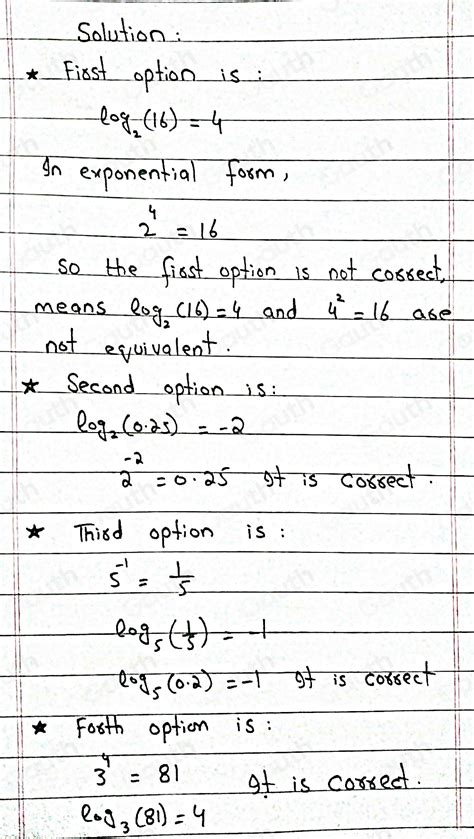 Solution :
★ First option is :
log₂(16) = 4
In exponential form,
2⁴ = 16
So the first option is not correct,
means log₂(16) = 4 and 4² = 16 are
not equivalent.
★ Second option is:
log₂(0.25) = -2
2⁻² = 0.25 It is correct.
★ Third option is :
5⁻¹ = 1/5
log₅(1/5) = -1
log₅(0.2) = -1 It is correct
★ Forth option is :
3⁴ = 81 It is correct.
log₃(81) = 4